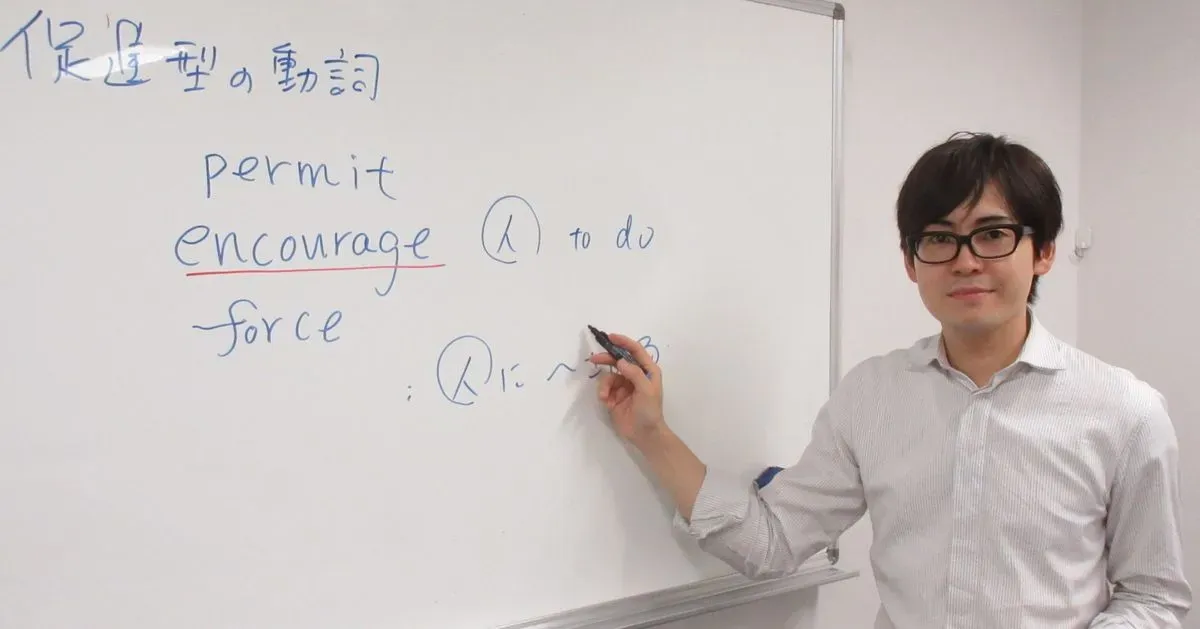 促進型の動詞
permit
encourage 人 to do
force
: 人に〜